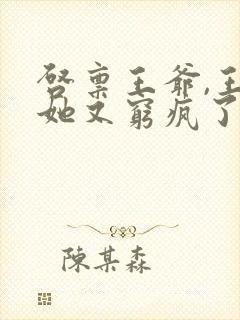 启禀王爷,王
她又窮疯了
陳某森